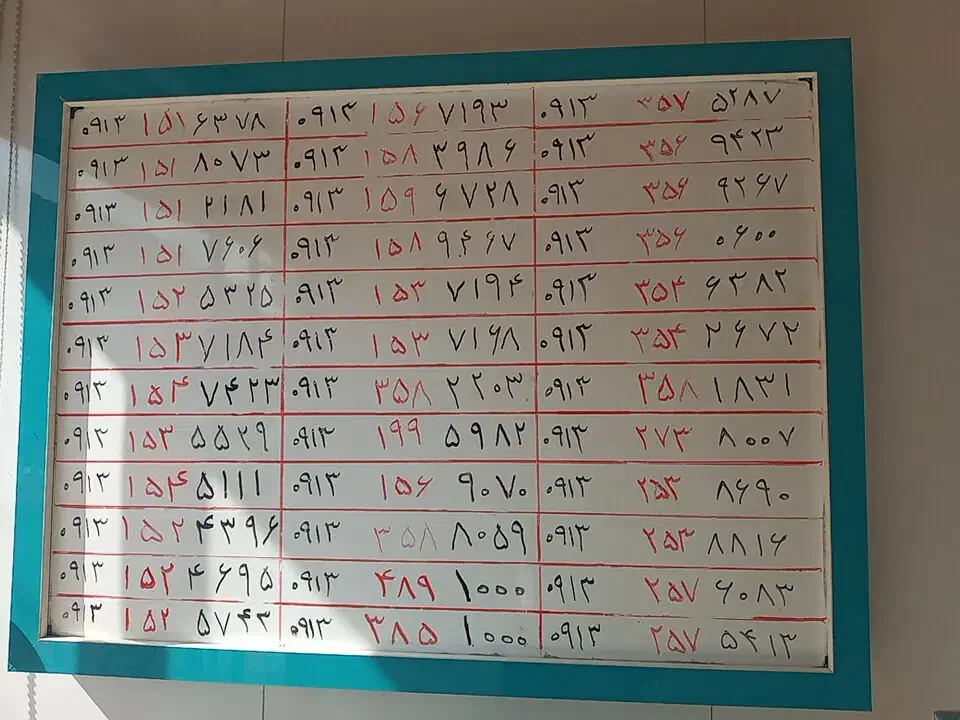 ۰۹۱۳ ۱۵۱ ۶۳۷۸ ۰۹۱۳ ۱۵۶ ۷۱۹۳ ۰۹۱۳ ۳۵۷ ۵۲۸۷
۰۹۱۳ ۱۵۱ ۸۰۷۳ ۰۹۱۳ ۱۵۸ ۳۹۸۶ ۰۹۱۳ ۳۵۶ ۹۴۲۳
۰۹۱۳ ۱۵۱ ۲۱۸۱ ۰۹۱۳ ۱۵۹ ۶۷۲۸ ۰۹۱۳ ۳۵۶ ۹۲۶۷
۰۹۱۳ ۱۵۱ ۷۶۰۶ ۰۹۱۳ ۱۵۸ ۹۴۶۷ ۰۹۱۳ ۳۵۶ ۰۶۰۰
۰۹۱۳ ۱۵۲ ۵۳۲۵ ۰۹۱۳ ۱۵۳ ۷۱۹۴ ۰۹۱۳ ۳۵۴ ۶۳۸۲
۰۹۱۳ ۱۵۳ ۷۱۸۴ ۰۹۱۳ ۱۵۳ ۷۱۶۸ ۰۹۱۳ ۳۵۴ ۲۶۷۲
۰۹۱۳ ۱۵۴ ۷۴۲۳ ۰۹۱۳ ۳۵۸ ۲۲۰۳ ۰۹۱۳ ۳۵۸ ۱۸۳۱
۰۹۱۳ ۱۵۳ ۵۵۲۹ ۰۹۱۳ ۱۹۹ ۵۹۸۲ ۰۹۱۳ ۲۷۳ ۸۰۰۷
۰۹۱۳ ۱۵۴ ۵۱۱۱ ۰۹۱۳ ۱۵۶ ۹۰۷۰ ۰۹۱۳ ۲۵۳ ۸۶۹۰
۰۹۱۳ ۱۵۲ ۴۳۹۶ ۰۹۱۳ ۳۵۸ ۸۰۵۹ ۰۹۱۳ ۲۵۳ ۸۸۱۶
۰۹۱۳ ۱۵۲ ۴۶۹۵ ۰۹۱۳ ۴۸۹ ۱۰۰۰ ۰۹۱۳ ۲۵۷ ۶۰۸۳
۰۹۱۳ ۱۵۲ ۵۷۴۳ ۰۹۱۳ ۳۸۵ ۱۰۰۰ ۰۹۱۳ ۲۵۷ ۵۴۱۳